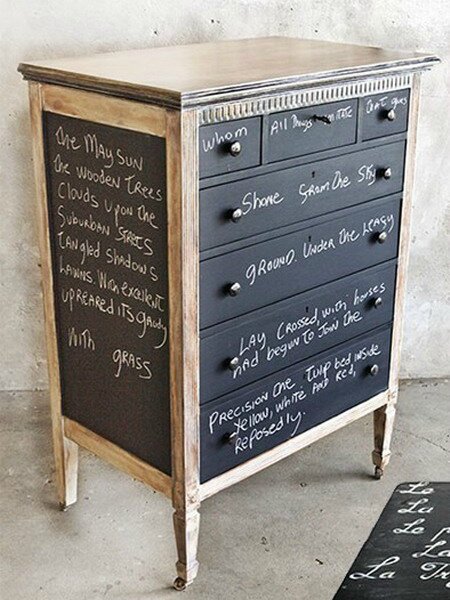 The MAY SUN
The WOODEN TREES
Clouds UPON The
SUBURBAN STREETS
TANGLED ShADOWS
LAWNS. With excellent
UPREARED iTS GAUDY
With
GRASS
Whom
All Things
ThAT GUYS
Shone FROM The SKY
GROUND. UNDER The LEAFY
LAY, CROSSED, with horses
hAD begun to JOIN The
PRECISION The TULIP bED INSIDE
YELLOW, White AND RED,
REPOSEDLY.
Le
La
Le
La
La